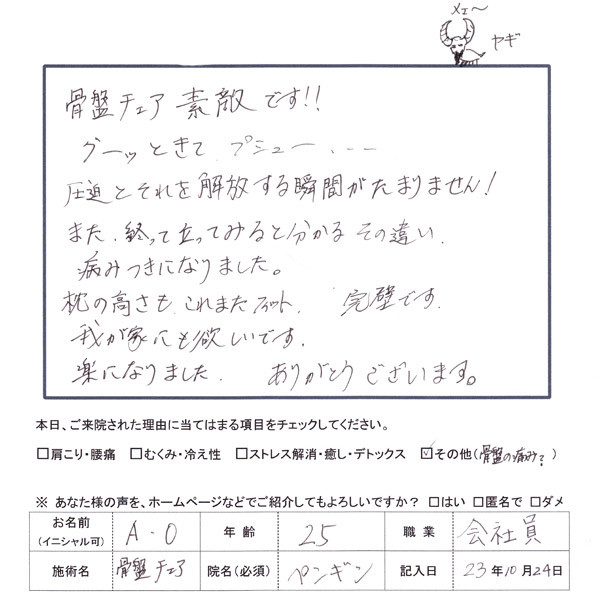 メェ〜
ヤギ
骨盤チェア 素敵です!!
グーッときて プシュー・・・
圧迫とそれを解放する瞬間がたまりません!
また、終って立ってみると分かる その違い、
病みつきになりました。
枕の高さも、これまたフィット、 完璧です。
我が家にも欲しいです。
楽になりました、 ありがとうございます。
本日、ご来院された理由に当てはまる項目をチェックしてください。
□肩こり・腰痛 □むくみ・冷え性 □ストレス解消・癒し・デトックス ☑その他(骨盤の痛み?)
※ あなた様の声を、ホームページなどでご紹介してもよろしいですか? □はい □匿名で □ダメ
お名前 (イニシャル可) A・O 年 齢 25 職 業 会社員
施術名 骨盤チェア 院名(必須) ペンギン 記入日 23年10月24日